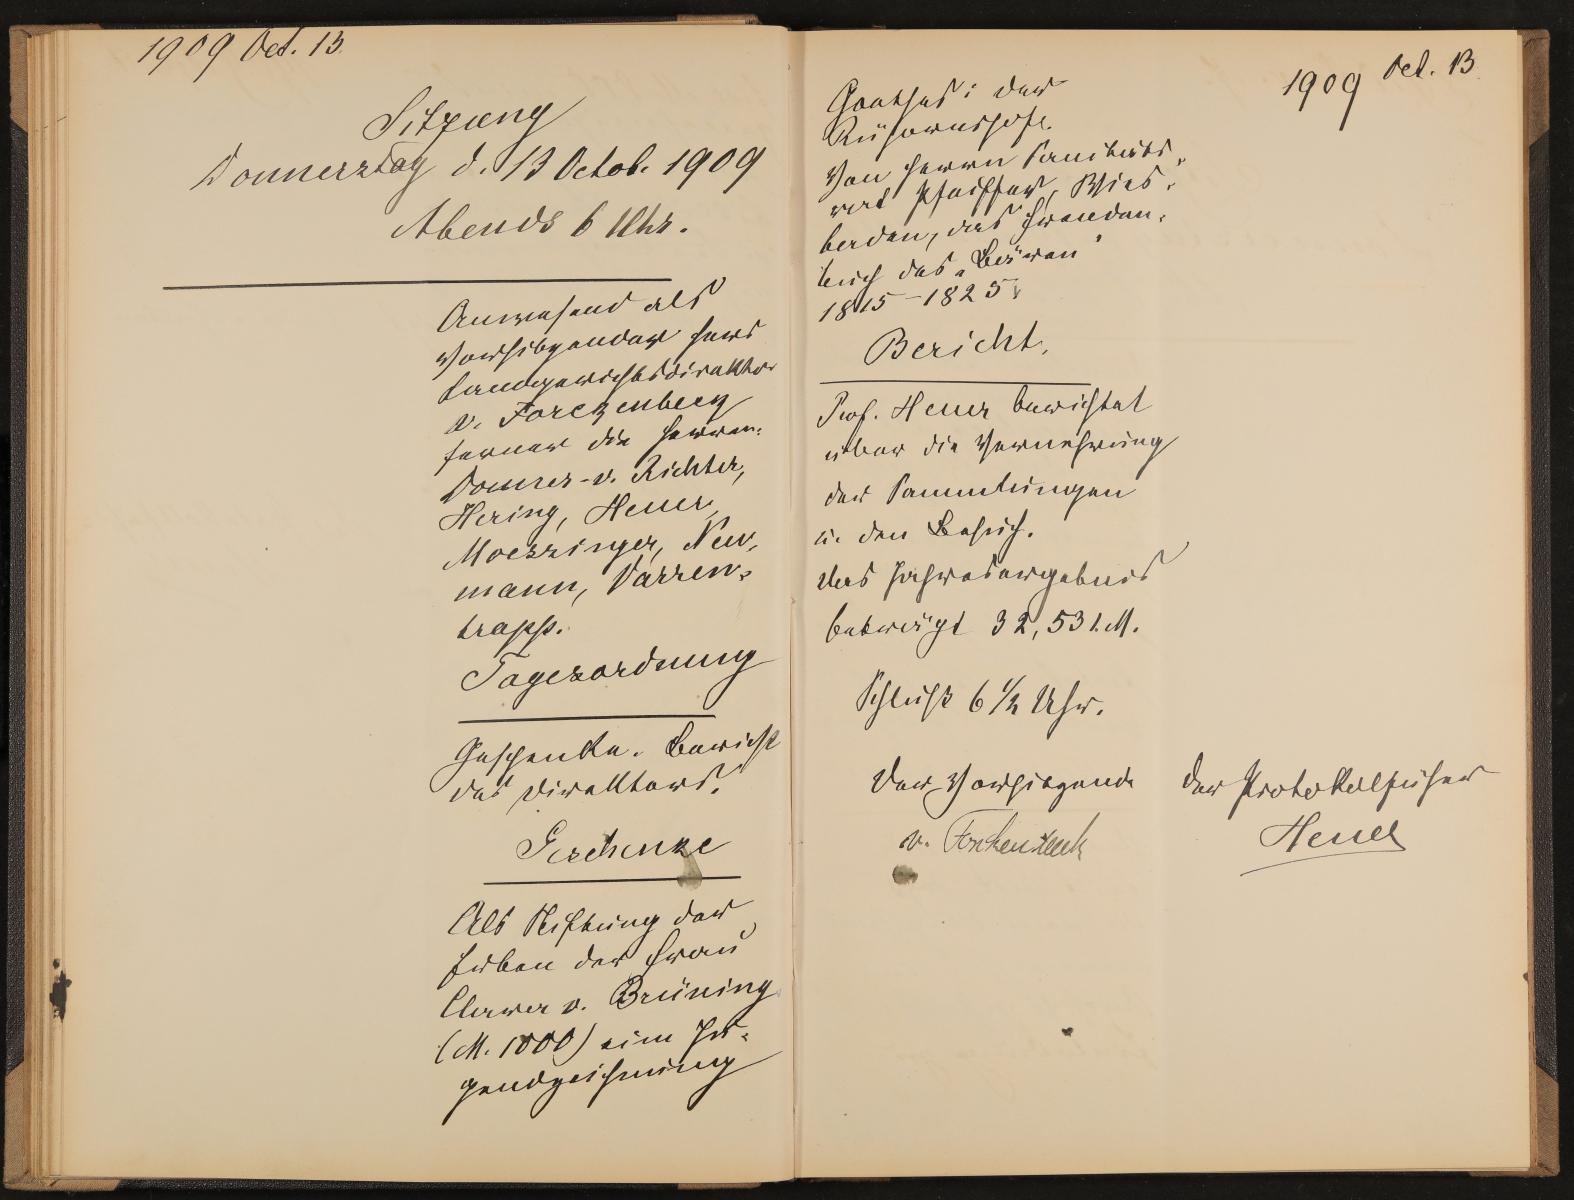 1909 Oct. 13.
Sitzung
Donnerstag d. 13 Octob. 1909
Abends 6 Uhr.
Anwesend als
Vorsitzender Herr
Landgerichtsdirektor
v. Forckenbeck
ferner die Herren:
Donner-v. Richter,
Hering, Heuer,
Moessinger, Neu-
mann, Varren-
trapp.
Tagesordnung
Geschenke. Bericht
des Direktors.
Geschenke
Als Stiftung der
Erben der Frau
Clara v. Brüning
(M. 1000) eine Ju-
gendzeichnung
1909 Oct. 13
Goethes: der
Rühornshof.
Von Herrn Sanitäts-
rat Pfeiffer, Wies-
baden, das Fremden-
buch des "Bären"
1815-1825.
Bericht.
Prof. Heuer berichtet
über die Vermehrung
der Sammlungen
u. den Besuch.
Das Jahresergebnis
beträgt 32,531.M.
Schluß 6 1/2 Uhr.
Der Vorsitzende
v. Forckenbeck
Der Protokollführer
Heuer